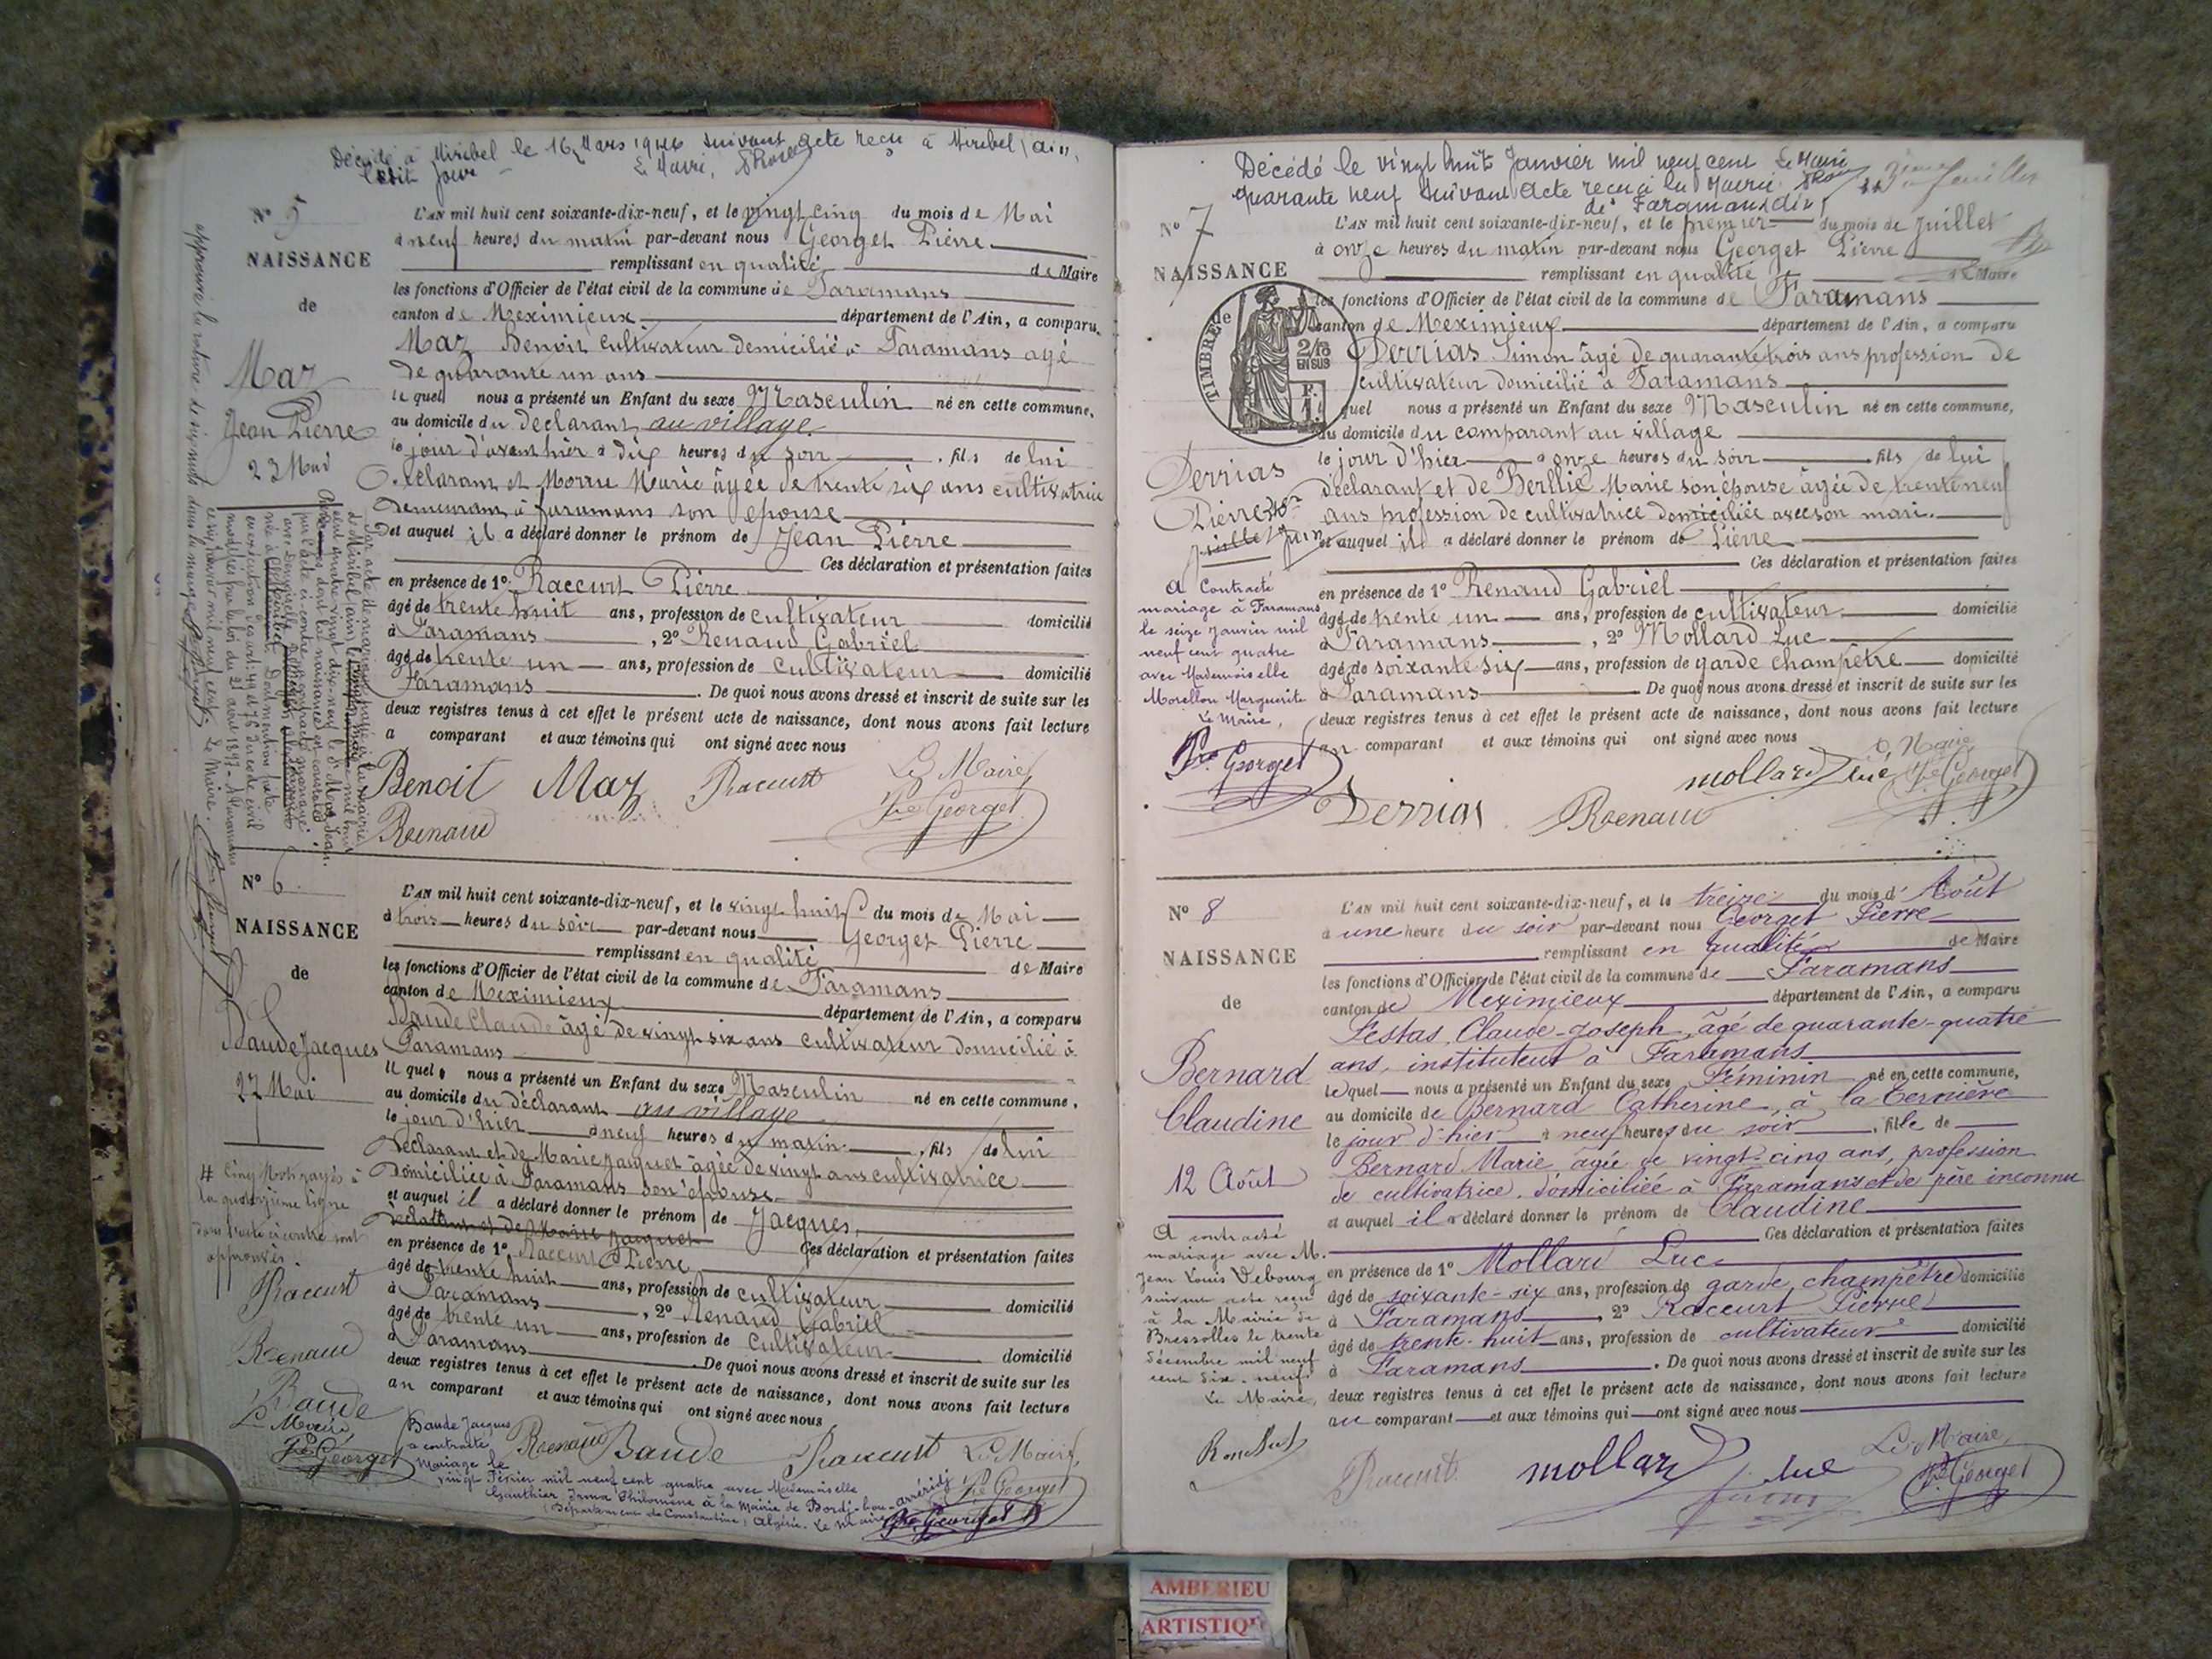 Décédé à Miribel le 16 Mars 1944 suivant acte reçu à Miribel (Ain)
Le Maire,
N° 5
NAISSANCE
de
Maz
Jean Pierre
23 Mai
L'AN mil huit cent soixante-dix-neuf, et le vingt cinq du mois de Mai
à neuf heures du matin par-devant nous Georget Pierre
remplissant en qualité de Maire
les fonctions d'Officier de l'état civil de la commune de Faramans
canton de Meximieux département de l'Ain, a comparu
Maz Benoit cultivateur domicilié à Faramans agé
de quarante un ans
le quel nous a présenté un Enfant du sexe Masculin né en cette commune,
au domicile du déclarant au village
le jour d'avant hier à dix heures du soir , fils de lui
déclarant et Marie âgée de trente six ans cultivatrice
demeurant à faramans son épouse
et auquel il a déclaré donner le prénom de Jean Pierre
Ces déclaration et présentation faites
en présence de 1° Raccurt Pierre
âgé de trente huit ans, profession de cultivateur domicilié
à Faramans , 2° Renaud Gabriel
âgé de trente un ans, profession de cultivateur domicilié
Faramans . De quoi nous avons dressé et inscrit de suite sur les
deux registres tenus à cet effet le présent acte de naissance, dont nous avons fait lecture
a comparant et aux témoins qui ont signé avec nous
Benoit Maz Raccurt Le Maire
Renaud Pre Georget
N° 6
NAISSANCE
de
Baude Jacques
27 Mai
L'AN mil huit cent soixante-dix-neuf, et le vingt huit du mois de Mai
à trois heures du soir par-devant nous Georget Pierre
remplissant en qualité de Maire
les fonctions d'Officier de l'état civil de la commune de Faramans
canton de Meximieux département de l'Ain, a comparu
Baude Claude âgé de vingt six ans cultivateur domicilié à
Faramans
le quel nous a présenté un Enfant du sexe Masculin né en cette commune,
au domicile du déclarant au village
le jour d'hier à neuf heures du matin , fils de lui
déclarant et de Marie Jacquet âgée de vingt ans cultivatrice
domiciliée à Faramans son épouse
et auquel il a déclaré donner le prénom de Jacques,
déclarant et de Marie Jacquet
Ces déclaration et présentation faites
en présence de 1° Raccurt Pierre
âgé de trente huit ans, profession de cultivateur domicilié
à Faramans , 2° Renaud Gabriel
âgé de trente un ans, profession de cultivateur domicilié
à Faramans . De quoi nous avons dressé et inscrit de suite sur les
deux registres tenus à cet effet le présent acte de naissance, dont nous avons fait lecture
au comparant et aux témoins qui ont signé avec nous
Cinq mots rayés à
la quatorzième ligne
dans l'acte ci contre sont
approuvés.
Raccurt
Renaud
Baude
Le Maire,
Pre Georget
Renaud Baude Raccurt Le Maire,
Pre Georget
Baude Jacques
a contracté
mariage le
vingt Février mil neuf cent quatre avec Mademoiselle
Gauthier Irma Philomène à la Mairie de Bordj-bou-arréridj
(Département de Constantine) Algérie. Le Maire
Pre Georget
Décédé le vingt huit Janvier mil neuf cent Le Maire
quarante neuf suivant acte reçu à la Mairie
de Faramans
N° 7
NAISSANCE
de
TIMBRE
2/10
EN SUS
Derrias
Pierre
L'AN mil huit cent soixante-dix-neuf, et le premier du mois de Juillet
à onze heures du matin par-devant nous Georget Pierre
remplissant en qualité de Maire
les fonctions d'Officier de l'état civil de la commune de Faramans
canton de Meximieux département de l'Ain, a comparu
Derrias Simon âgé de quarante trois ans profession de
cultivateur domicilié à Faramans
quel nous a présenté un Enfant du sexe Masculin né en cette commune,
au domicile du comparant au village
le jour d'hier à onze heures du soir fils de lui
déclarant et de Berllie Marie son épouse âgée de trente neuf
ans profession de cultivatrice domiciliée avec son mari.
et auquel il a déclaré donner le prénom de Pierre
Ces déclaration et présentation faites
en présence de 1° Renaud Gabriel
âgé de trente un ans, profession de cultivateur domicilié
à Faramans , 2° Mollard Luc
âgé de soixante six ans, profession de garde champêtre domicilié
à Faramans De quoi nous avons dressé et inscrit de suite sur les
deux registres tenus à cet effet le présent acte de naissance, dont nous avons fait lecture
au comparant et aux témoins qui ont signé avec nous
a Contracté
mariage à Faramans
le seize Janvier mil
neuf cent quatre
avec Mademoiselle
Morellon Marguerite
Le Maire,
Pre Georget
Derrias Renaud mollard luc Pre Georget
N° 8
NAISSANCE
de
Bernard
Claudine
12 Août
L'AN mil huit cent soixante-dix-neuf, et le treize du mois d' Août
à une heure du soir par-devant nous Georget Pierre
remplissant en qualité de Maire
les fonctions d'Officier de l'état civil de la commune de Faramans
canton de Meximieux département de l'Ain, a comparu
Festas, Claude-Joseph, âgé de quarante-quatre
ans, instituteur à Faramans
lequel nous a présenté un Enfant du sexe Féminin né en cette commune,
au domicile de Bernard Catherine, à la
le jour d'hier à neuf heures du soir , fille de
Bernard Marie, âgée de vingt-cinq ans, profession
de cultivatrice, domiciliée à Faramans et de père inconnu
et auquel il a déclaré donner le prénom de Claudine
Ces déclaration et présentation faites
en présence de 1° Mollard Luc
âgé de soixante-six ans, profession de garde champêtre domicilié
à Faramans , 2° Raccurt Pierre
âgé de trente-huit ans, profession de cultivateur domicilié
à Faramans . De quoi nous avons dressé et inscrit de suite sur les
deux registres tenus à cet effet le présent acte de naissance, dont nous avons fait lecture
au comparant et aux témoins qui ont signé avec nous
A contracté
mariage avec M.
Jean Louis Debourg
suivant acte reçu
à la Mairie de
Bressolles le trente
décembre mil neuf
cent dix-neuf.
Le Maire,
Raccurt mollard luc Le Maire,
Pre Georget
AMBERIEU
ARTISTIQUE